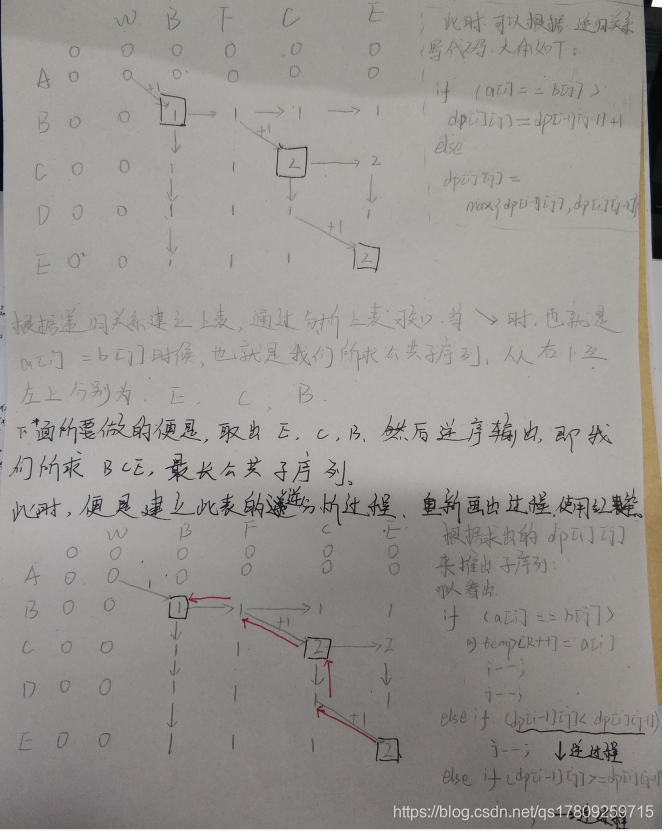 W B F C E
0 0 0 0 0 0
A 0 0 0 0 0 0
+1
B 0 0 1 1 1 1
+1
C 0 0 1 1 2 2
D 0 0 1 1 1 1
+1
E 0 0 1 1 1 2
此时可以根据递归关系
写代码.大体如下:
if (a[i] == b[j])
dp[i][j] = dp[i-1][j-1]+1
else
dp[i][j] =
max{dp[i-1][j], dp[i][j-1]}
根据递归关系建立上表,通过分析上表可知,当↘时,也就是
a[i] = b[j]时候,也就是我们所求公共子序列,从右下至
左上分别为. E. C, B.
下面所要做的便是,取出 E, C, B, 然后逆序输出,即我
们所求 BCE, 最长公共子序列。
此时,便是建立此表的逆分析过程,重新画出过程,使用红
W B F C E
0 0 0 0 0 0
A 0 0 0 0 0 0
1
B 0 0 1 1 1 1
+1
C 0 0 1 1 2 2
D 0 0 1 1 1 1
+1
E 0 0 1 1 1 2
根据求出的 dp[i][j]
来推出子序列:
可以看出
if (a[i] == b[j])
temp[k++] = a[i]
i--;
j--;
else if (dp[i-1][j] < dp[i][j-1])
j--; ↓逆过程
else if (dp[i-1][j] >= dp[i][j-1]
https://blog.csdn.net/qs17809259715